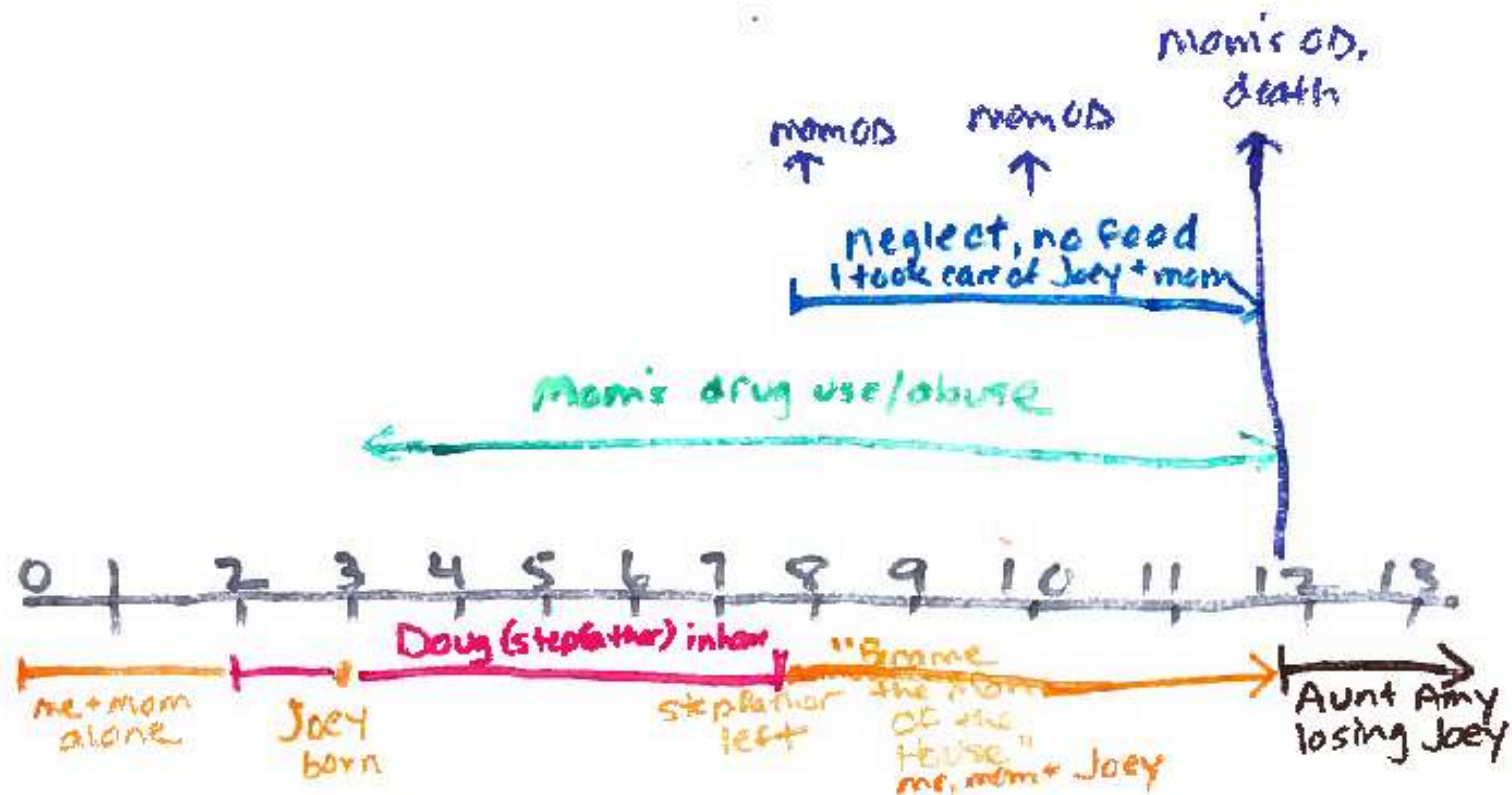 mom's OD,
death
mom OD
mom OD
neglect, no food
I took care of Joey + mom
Mom's drug use/abuse
0 1 2 3 4 5 6 7 8 9 10 11 12 13
Doug (stepfather) in home
me + mom
alone
Joey
born
stepfather
left
"Became
the mom
of the
House"
me, mom + Joey
Aunt Amy
losing Joey